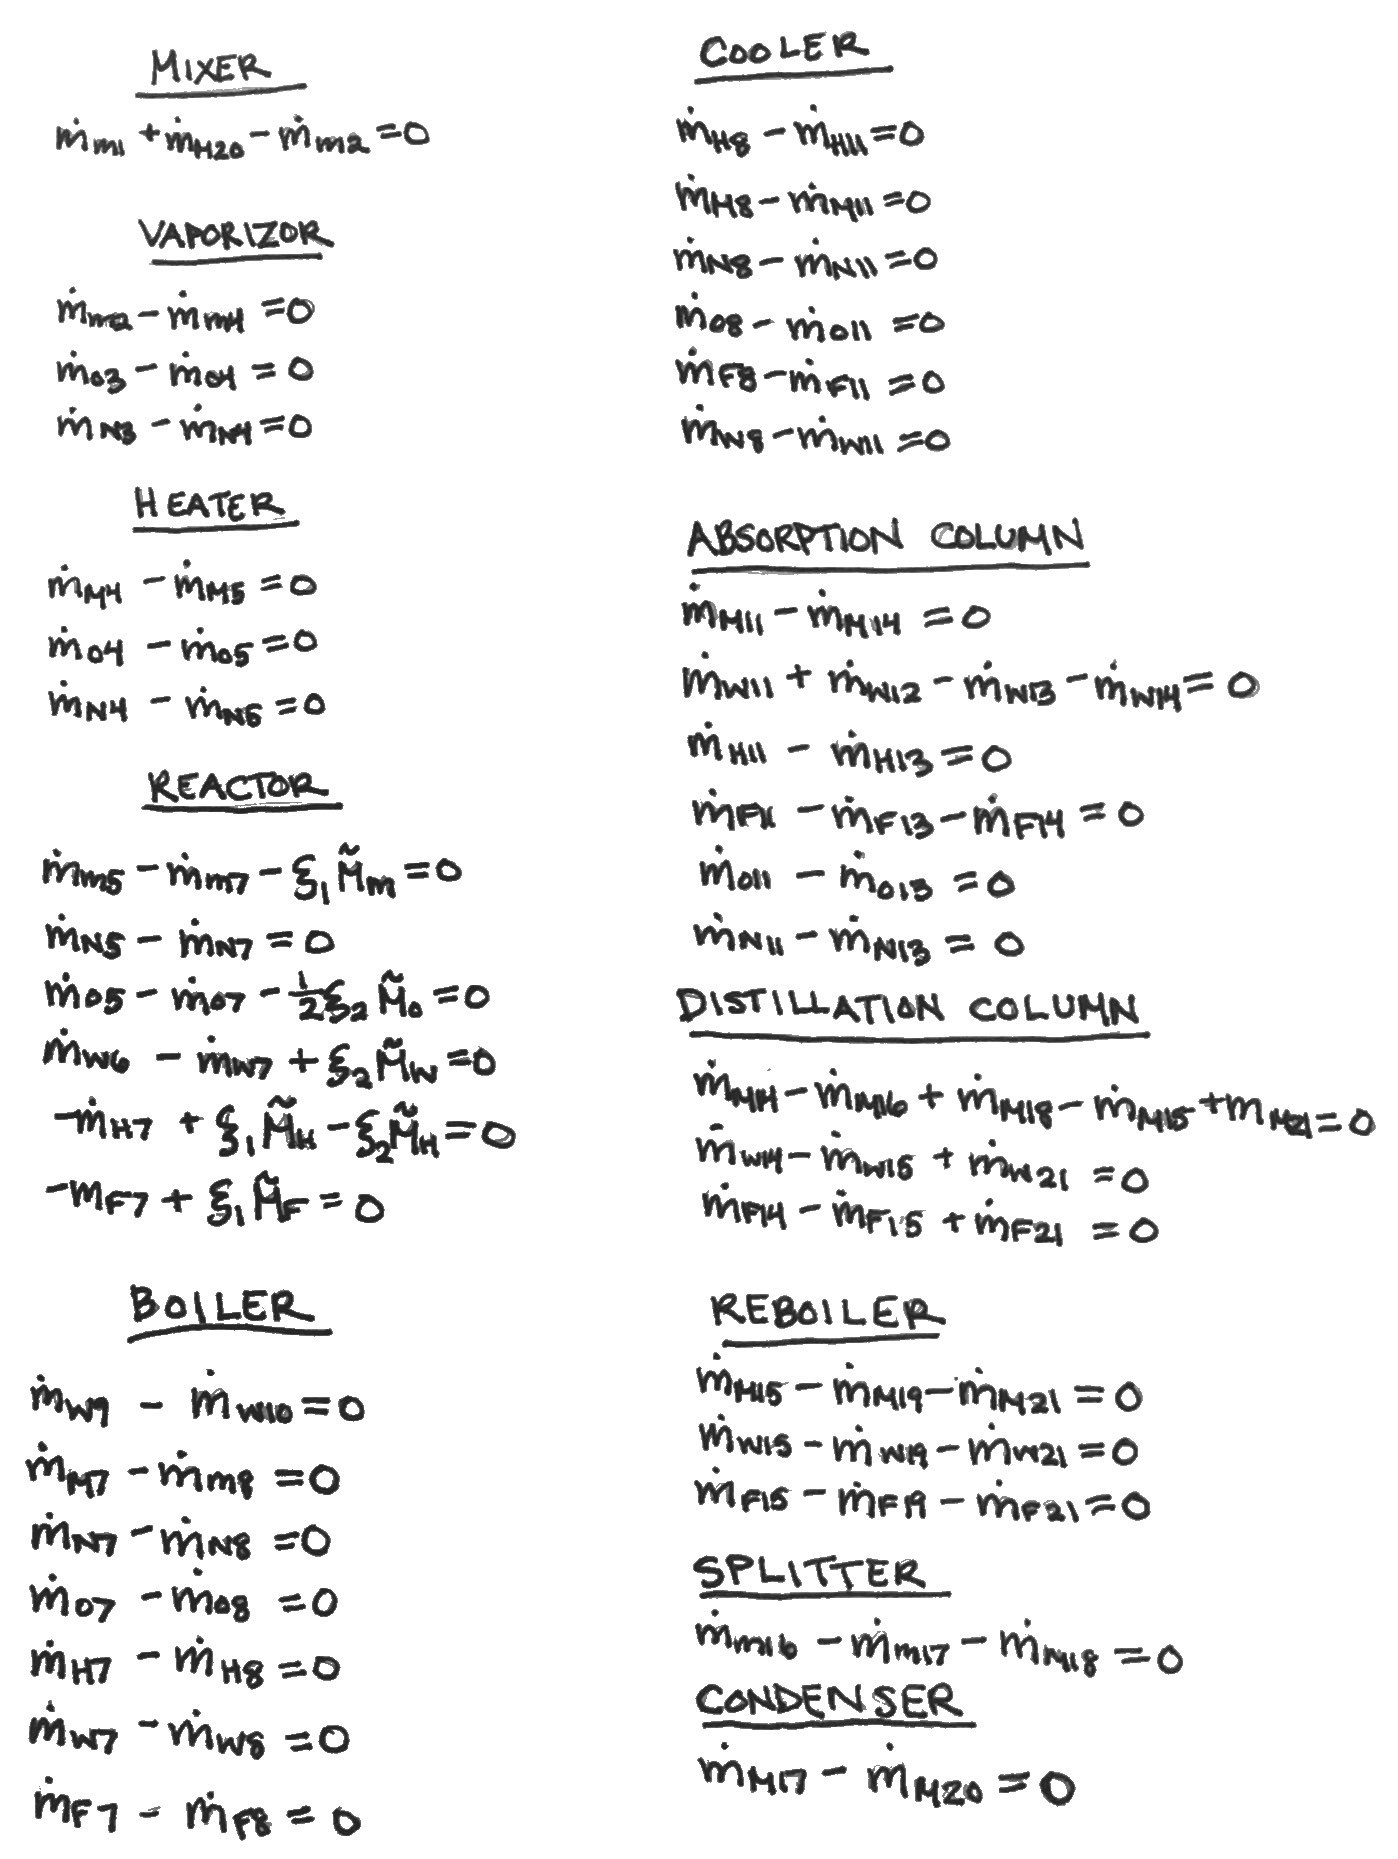 MIXER
ṁm1 + ṁM20 - ṁm2 = 0
VAPORIZOR
ṁm2 - ṁm4 = 0
ṁO3 - ṁO4 = 0
ṁN3 - ṁN4 = 0
HEATER
ṁM4 - ṁM5 = 0
ṁO4 - ṁO5 = 0
ṁN4 - ṁN5 = 0
REACTOR
ṁm5 - ṁm7 - ξ1 M̃m = 0
ṁN5 - ṁN7 = 0
ṁO5 - ṁO7 - 1/2 ξ2 M̃O = 0
ṁW6 - ṁW7 + ξ2 M̃W = 0
-ṁH7 + ξ1 M̃H - ξ2 M̃H = 0
-mF7 + ξ1 M̃F = 0
BOILER
ṁW9 - ṁW10 = 0
ṁM7 - ṁm8 = 0
ṁN7 - ṁN8 = 0
ṁO7 - ṁO8 = 0
ṁH7 - ṁH8 = 0
ṁW7 - ṁW8 = 0
ṁF7 - ṁF8 = 0
COOLER
ṁH8 - ṁH11 = 0
ṁM8 - ṁM11 = 0
ṁN8 - ṁN11 = 0
ṁO8 - ṁO11 = 0
ṁF8 - ṁF11 = 0
ṁW8 - ṁW11 = 0
ABSORPTION COLUMN
ṁM11 - ṁM14 = 0
ṁW11 + ṁW12 - ṁW13 - ṁW14 = 0
ṁH11 - ṁH13 = 0
ṁF11 - ṁF13 - ṁF14 = 0
ṁO11 - ṁO13 = 0
ṁN11 - ṁN13 = 0
DISTILLATION COLUMN
ṁM14 - ṁM16 + ṁM18 - ṁM15 + mM21 = 0
ṁW14 - ṁW15 + ṁW21 = 0
ṁF14 - ṁF15 + ṁF21 = 0
REBOILER
ṁM15 - ṁM19 - ṁM21 = 0
ṁW15 - ṁW19 - ṁW21 = 0
ṁF15 - ṁF19 - ṁF21 = 0
SPLITTER
ṁm16 - ṁm17 - ṁM18 = 0
CONDENSER
ṁM17 - ṁM20 = 0